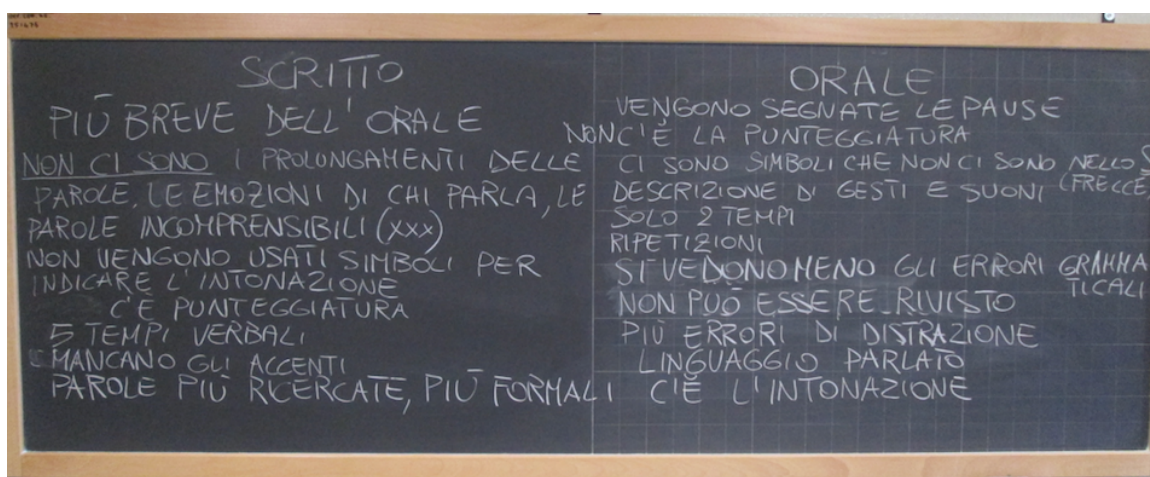 SCRITTO
PIÙ BREVE DELL'ORALE
NON CI SONO I PROLUNGAMENTI DELLE
PAROLE, LE EMOZIONI DI CHI PARLA, LE
PAROLE INCOMPRENSIBILI (XXX)
NON VENGONO USATI SIMBOLI PER
INDICARE L'INTONAZIONE
C'È PUNTEGGIATURA
5 TEMPI VERBALI
MANCANO GLI ACCENTI
PAROLE PIÙ RICERCATE, PIÙ FORMALI
ORALE
VENGONO SEGNATE LE PAUSE
NON C'È LA PUNTEGGIATURA
CI SONO SIMBOLI CHE NON CI SONO NELLO S
(FRECCE
DESCRIZIONE DI GESTI E SUONI
SOLO 2 TEMPI
RIPETIZIONI
SI VEDONO MENO GLI ERRORI GRAMMA
TICALI
NON PUÒ ESSERE RIVISTO
PIÙ ERRORI DI DISTRAZIONE
LINGUAGGIO PARLATO
C'È L'INTONAZIONE